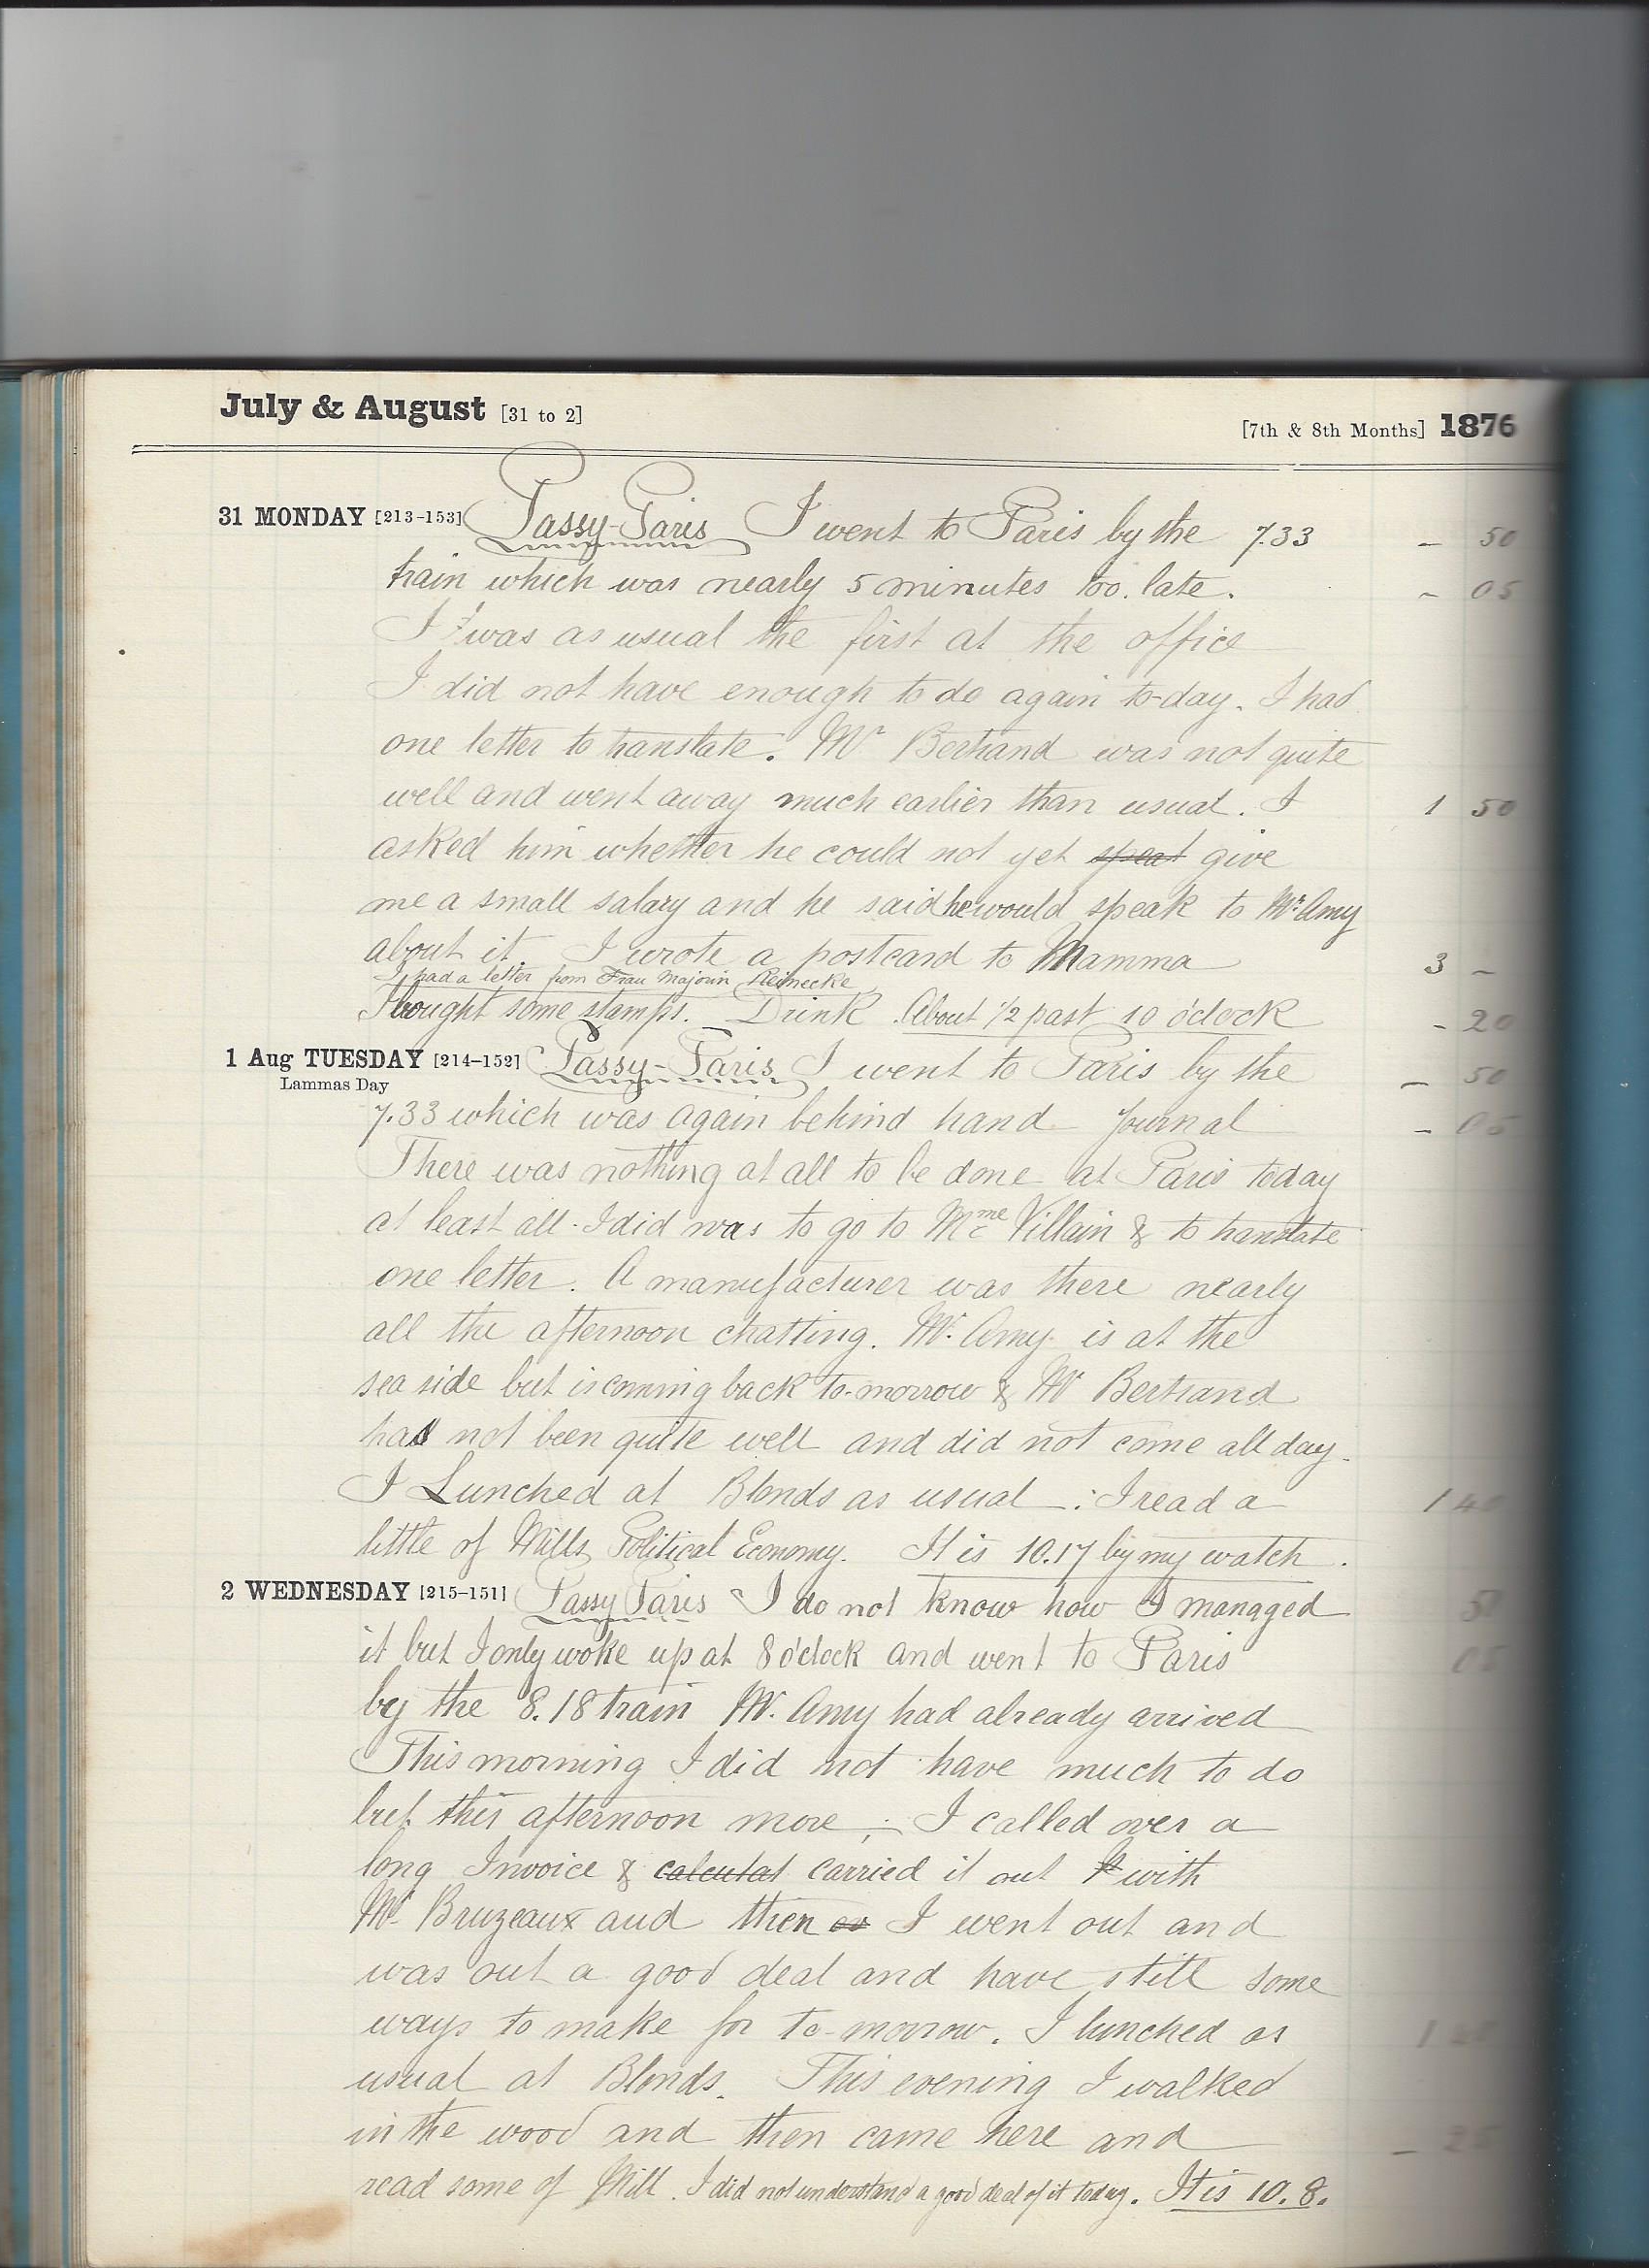 July & August [31 to 2] [7th & 8th Months] 1876
31 MONDAY [213-153] Passy-Paris I went to Paris by the 7.33 – 50
train which was nearly 5 minutes too late. – 05
I was as usual the first at the office
I did not have enough to do again to-day. I had
one letter to translate. Mr Bertrand was not quite
well and went away much earlier than usual. I 1 50
asked him whether he could not yet speat give
me a small salary and he said he would speak to Mr. Amy
about it. I wrote a postcard to Mamma 3 –
I had a letter from Frau Majorin Reinecke
I bought some stamps. Drink. About 1/2 past 10 o'clock - 20
1 Aug TUESDAY [214-152] Passy-Paris I went to Paris by the – 50
Lammas Day
7.33 which was again behind hand Journal – 05
There was nothing at all to be done at Paris today
at least all I did was to go to Mme Villain & to translate
one letter. A manufacturer was there nearly
all the afternoon chatting. Mr. Amy is at the
sea side but is coming back to-morrow & Mr Bertrand
has not been quite well and did not come all day.
I Lunched at Blonds as usual. I read a 1 40
little of Mills Political Economy. It is 10.17 by my watch.
2 WEDNESDAY [215-151] Passy Paris I do not know how I managed 50
it but I only woke up at 8 o'clock and went to Paris 05
by the 8.18 train Mr. Amy had already arrived
This morning I did not have much to do
but this afternoon more; I called over a
long Invoice & calculat carried it out with
Mr. Bruzeaux and then I went out and
was out a good deal and have still some
ways to make for to-morrow. I lunched as 1
usual at Blonds. This evening I walked
in the wood and then came here and –
read some of Mill. I did not understand a good deal of it today. It is 10.8.